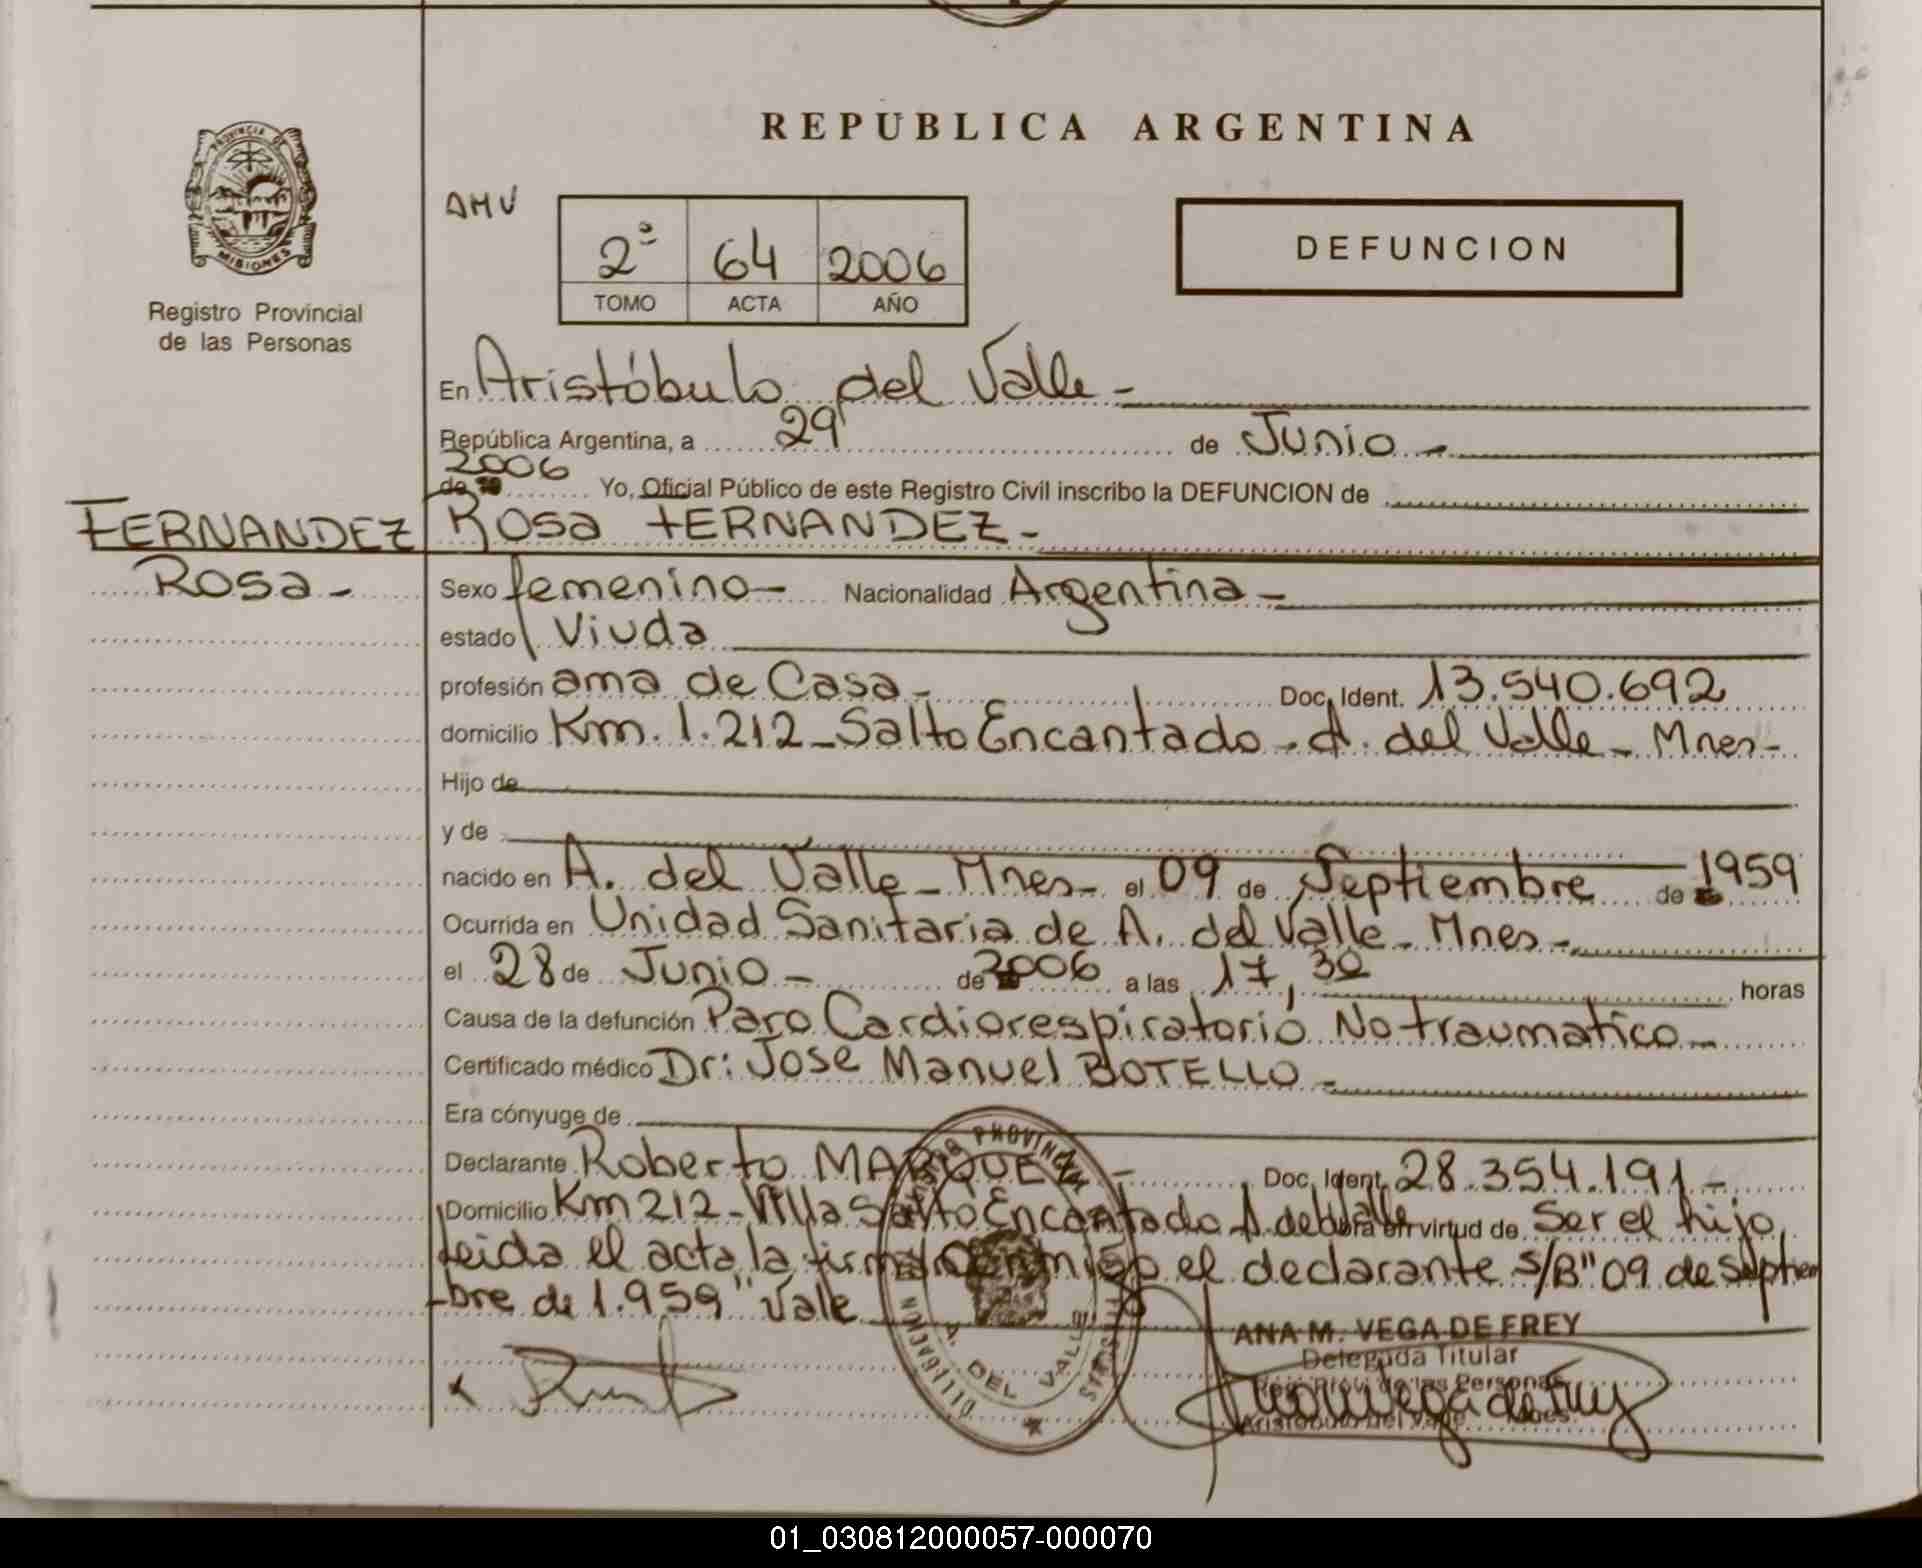 REPUBLICA ARGENTINA
PROVINCIA DE
MISIONES
Registro Provincial
de las Personas
AMV
2º 64 2006
TOMO ACTA AÑO
DEFUNCION
En Aristóbulo del Valle -
República Argentina, a 29 de Junio -
2006
de Yo, Oficial Público de este Registro Civil inscribo la DEFUNCION de
FERNANDEZ Rosa FERNANDEZ -
Rosa - Sexo femenino - Nacionalidad Argentina -
estado Viuda
profesión ama de Casa - Doc. Ident. 13.540.692
domicilio Km. 1.212 - Salto Encantado - A. del Valle - Mnes -
Hijo de
y de
nacido en A. del Valle - Mnes - el 09 de Septiembre de 1959
Ocurrida en Unidad Sanitaria de A. del Valle - Mnes -
el 28 de Junio - de 2006 a las 17,30 horas
Causa de la defunción Paro Cardiorespiratorio No traumatico -
Certificado médico Dr: Jose Manuel BOTELLO -
Era cónyuge de
Declarante Roberto MARQUE - Doc. Ident. 28.354.191 -
Domicilio Km 212 - Villa Salto Encantado A. del Valle obra en virtud de Ser el hijo
leida el acta la firma conmigo el declarante s/B "09 de Septiem
-bre de 1.959" Vale
REGISTRO PROVINCIAL DE LAS PERSONAS
DELEGACION
A. DEL VALLE
ANA M. VEGA DE FREY
Delegada Titular
de las Personas
Aristóbulo del Valle Mnes.
01_030812000057-000070